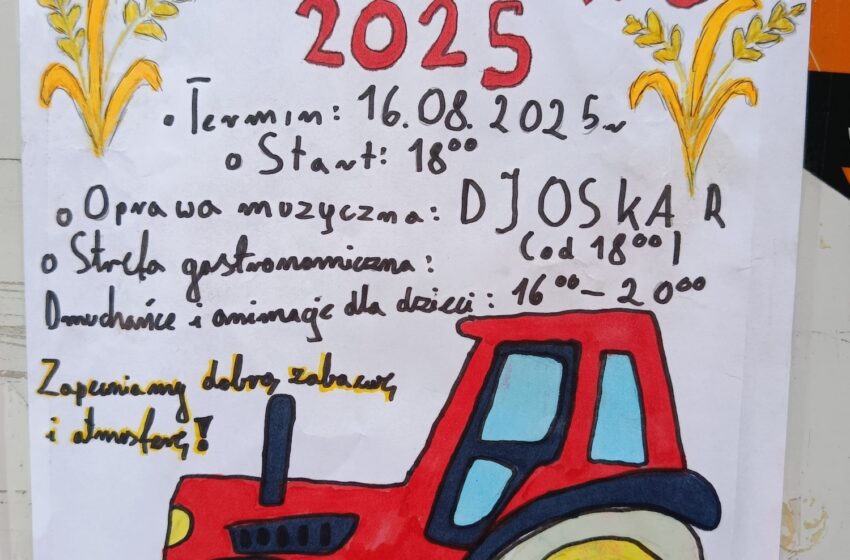 2025
• Termin: 16.08.2025r
o Start: 18⁰⁰
o Oprawa muzyczna: DJ OSKAR
(od 18⁰⁰)
o Strefa gastronomiczna:
Dmuchańce i animacje dla dzieci: 16⁰⁰-20⁰⁰
Zapewniamy dobrą zabawę
i atmosferę!